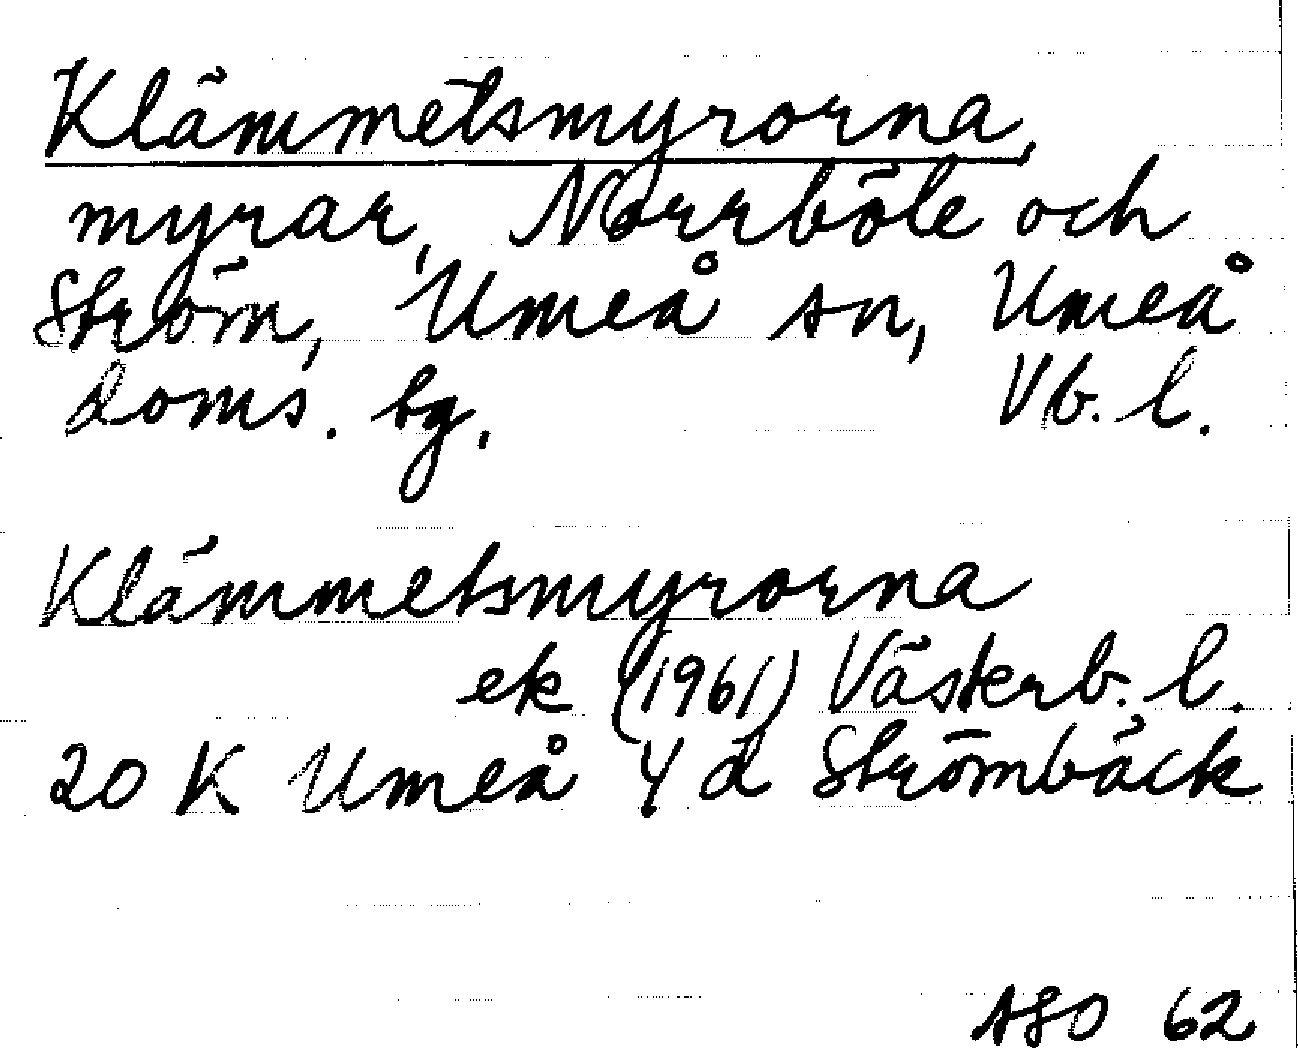 Klämmetsmyrorna,
myrar, Norrböle och
Ström, Umeå sn, Umeå
doms. bg. Vb. l.
Klämmetsmyrorna
ek (1961) Västerb. l.
20 K Umeå 4 d Strömbäck
ASO 62